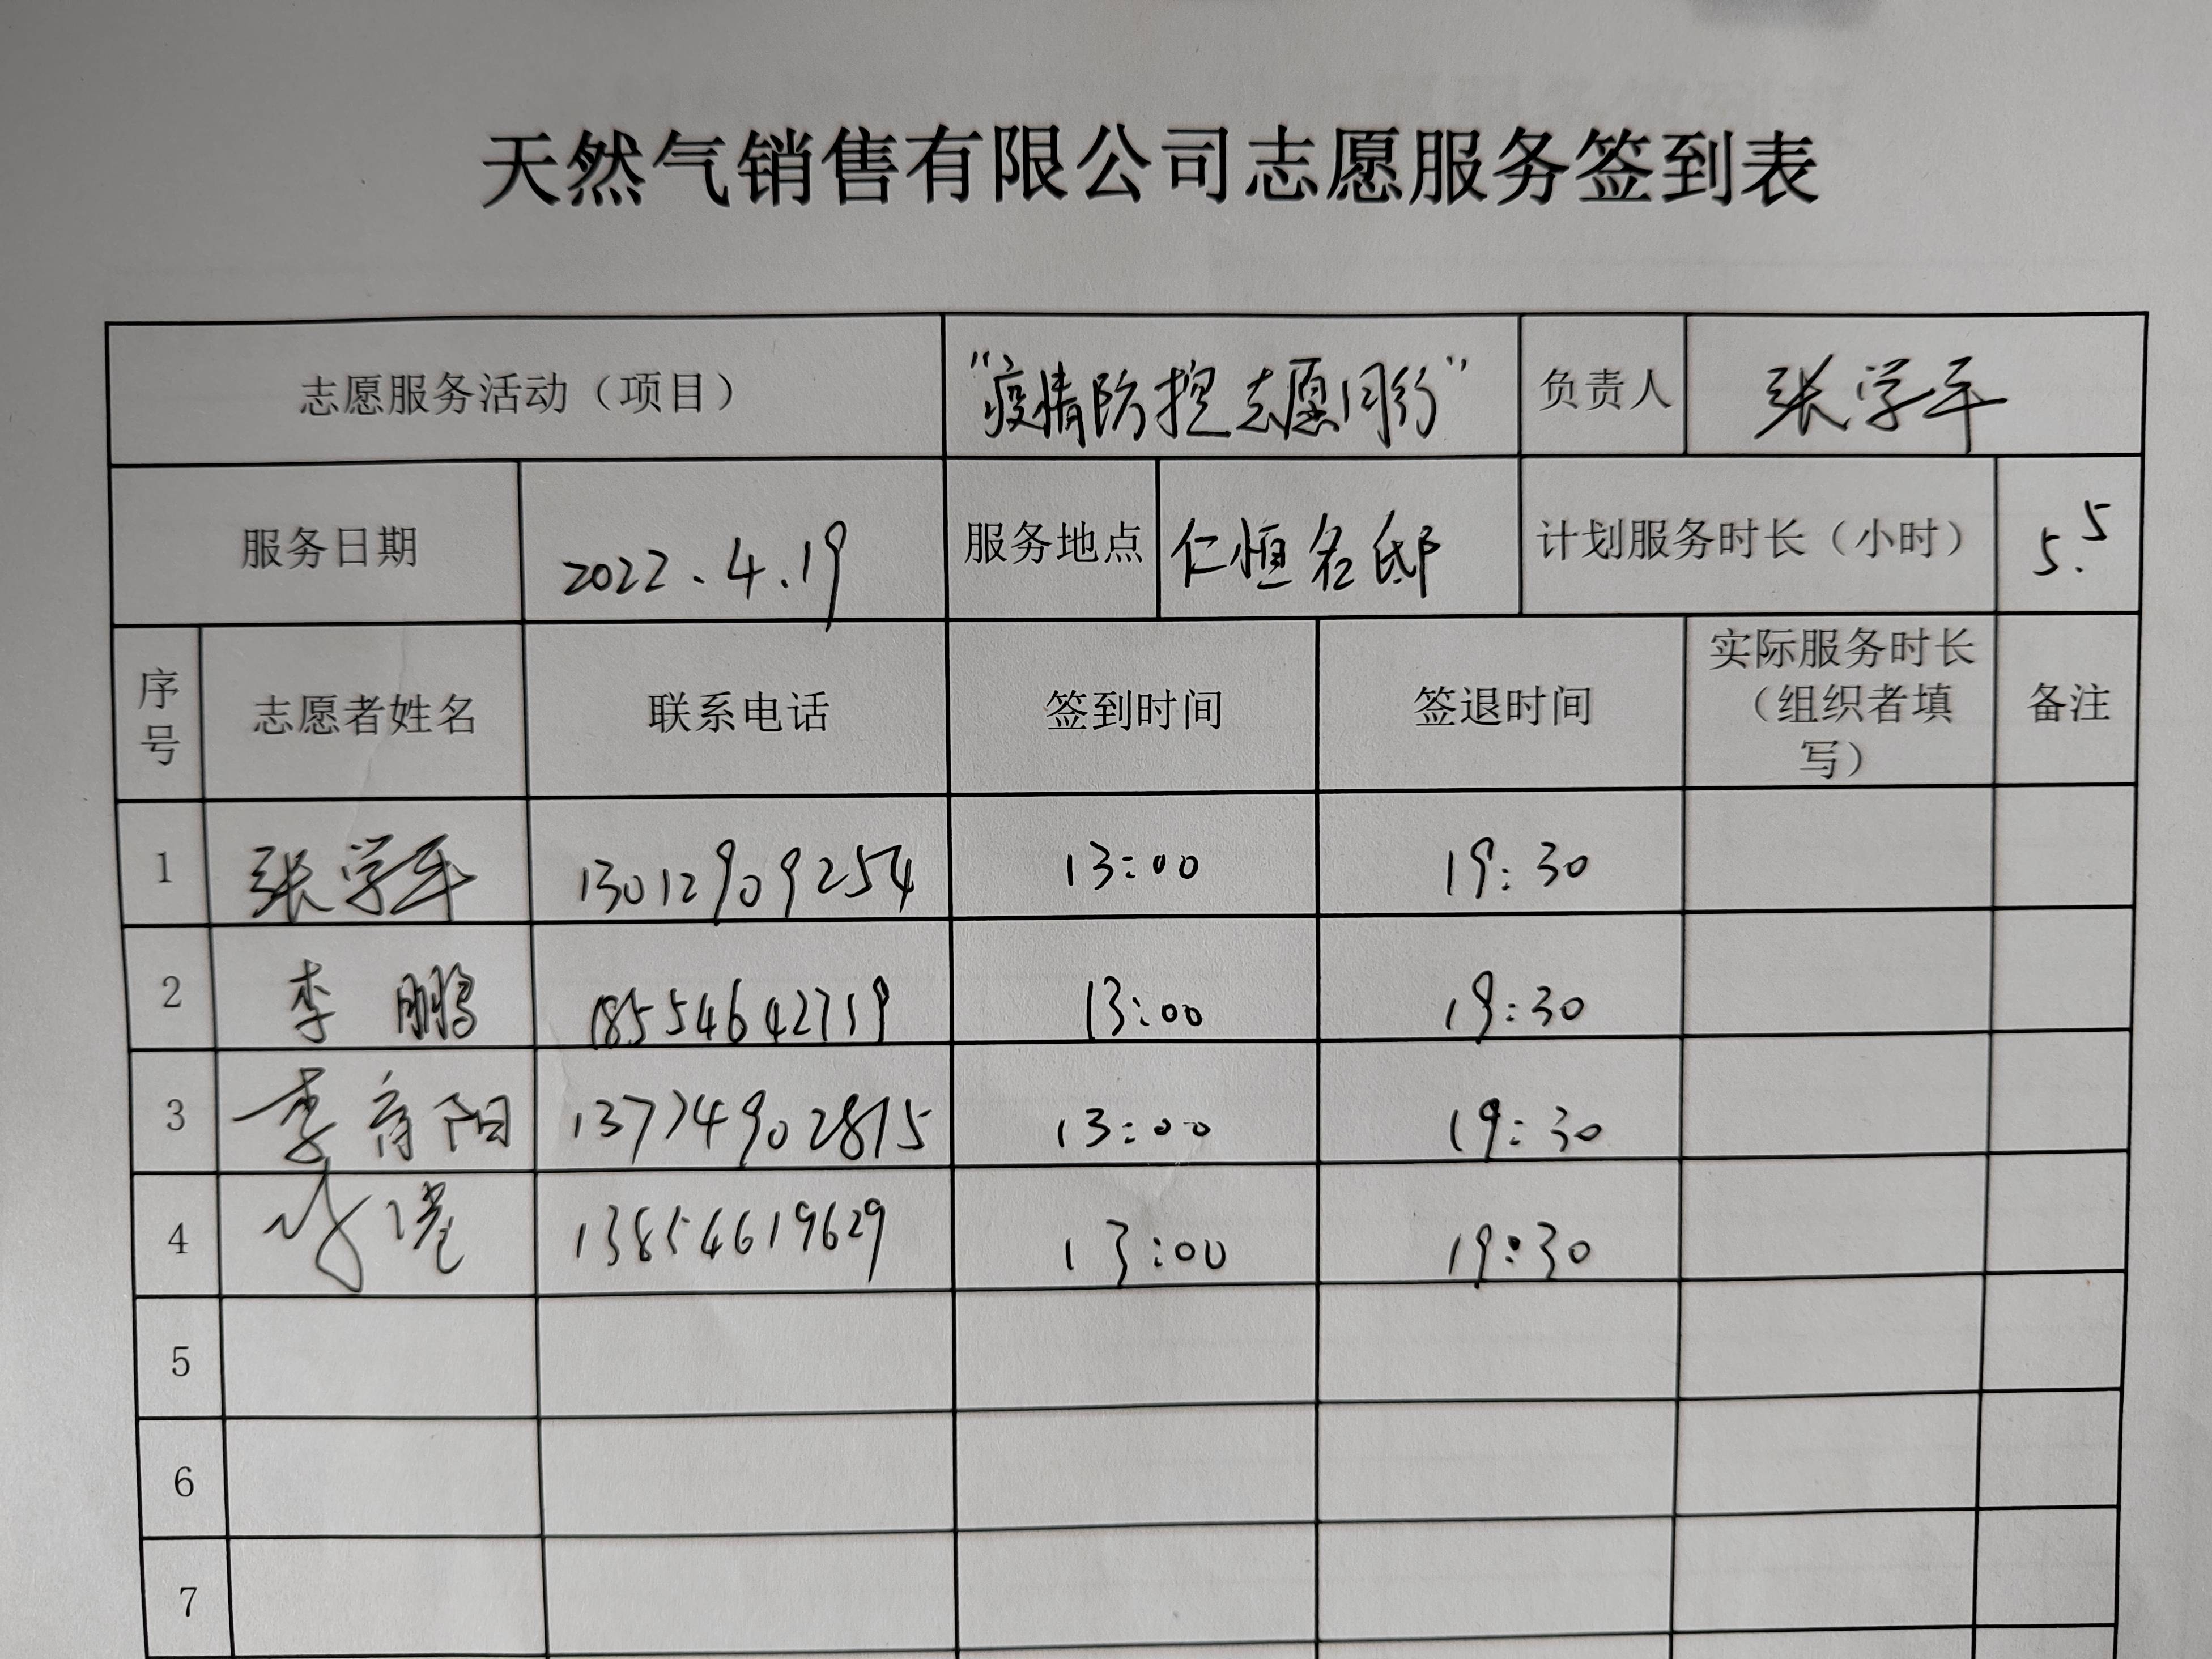 天然气销售有限公司志愿服务签到表
志愿服务活动（项目） “疫情防控志愿同行” 负责人 张学军
服务日期 2022.4.19 服务地点 仁恒名邸 计划服务时长（小时） 5.5
序号 志愿者姓名 联系电话 签到时间 签退时间 实际服务时长（组织者填写） 备注
1 张学军 13012909254 13:00 19:30
2 李鹏 18554642719 13:00 19:30
3 李育阳 13774902815 13:00 19:30
4 13854619629 13:00 19:30
5
6
7